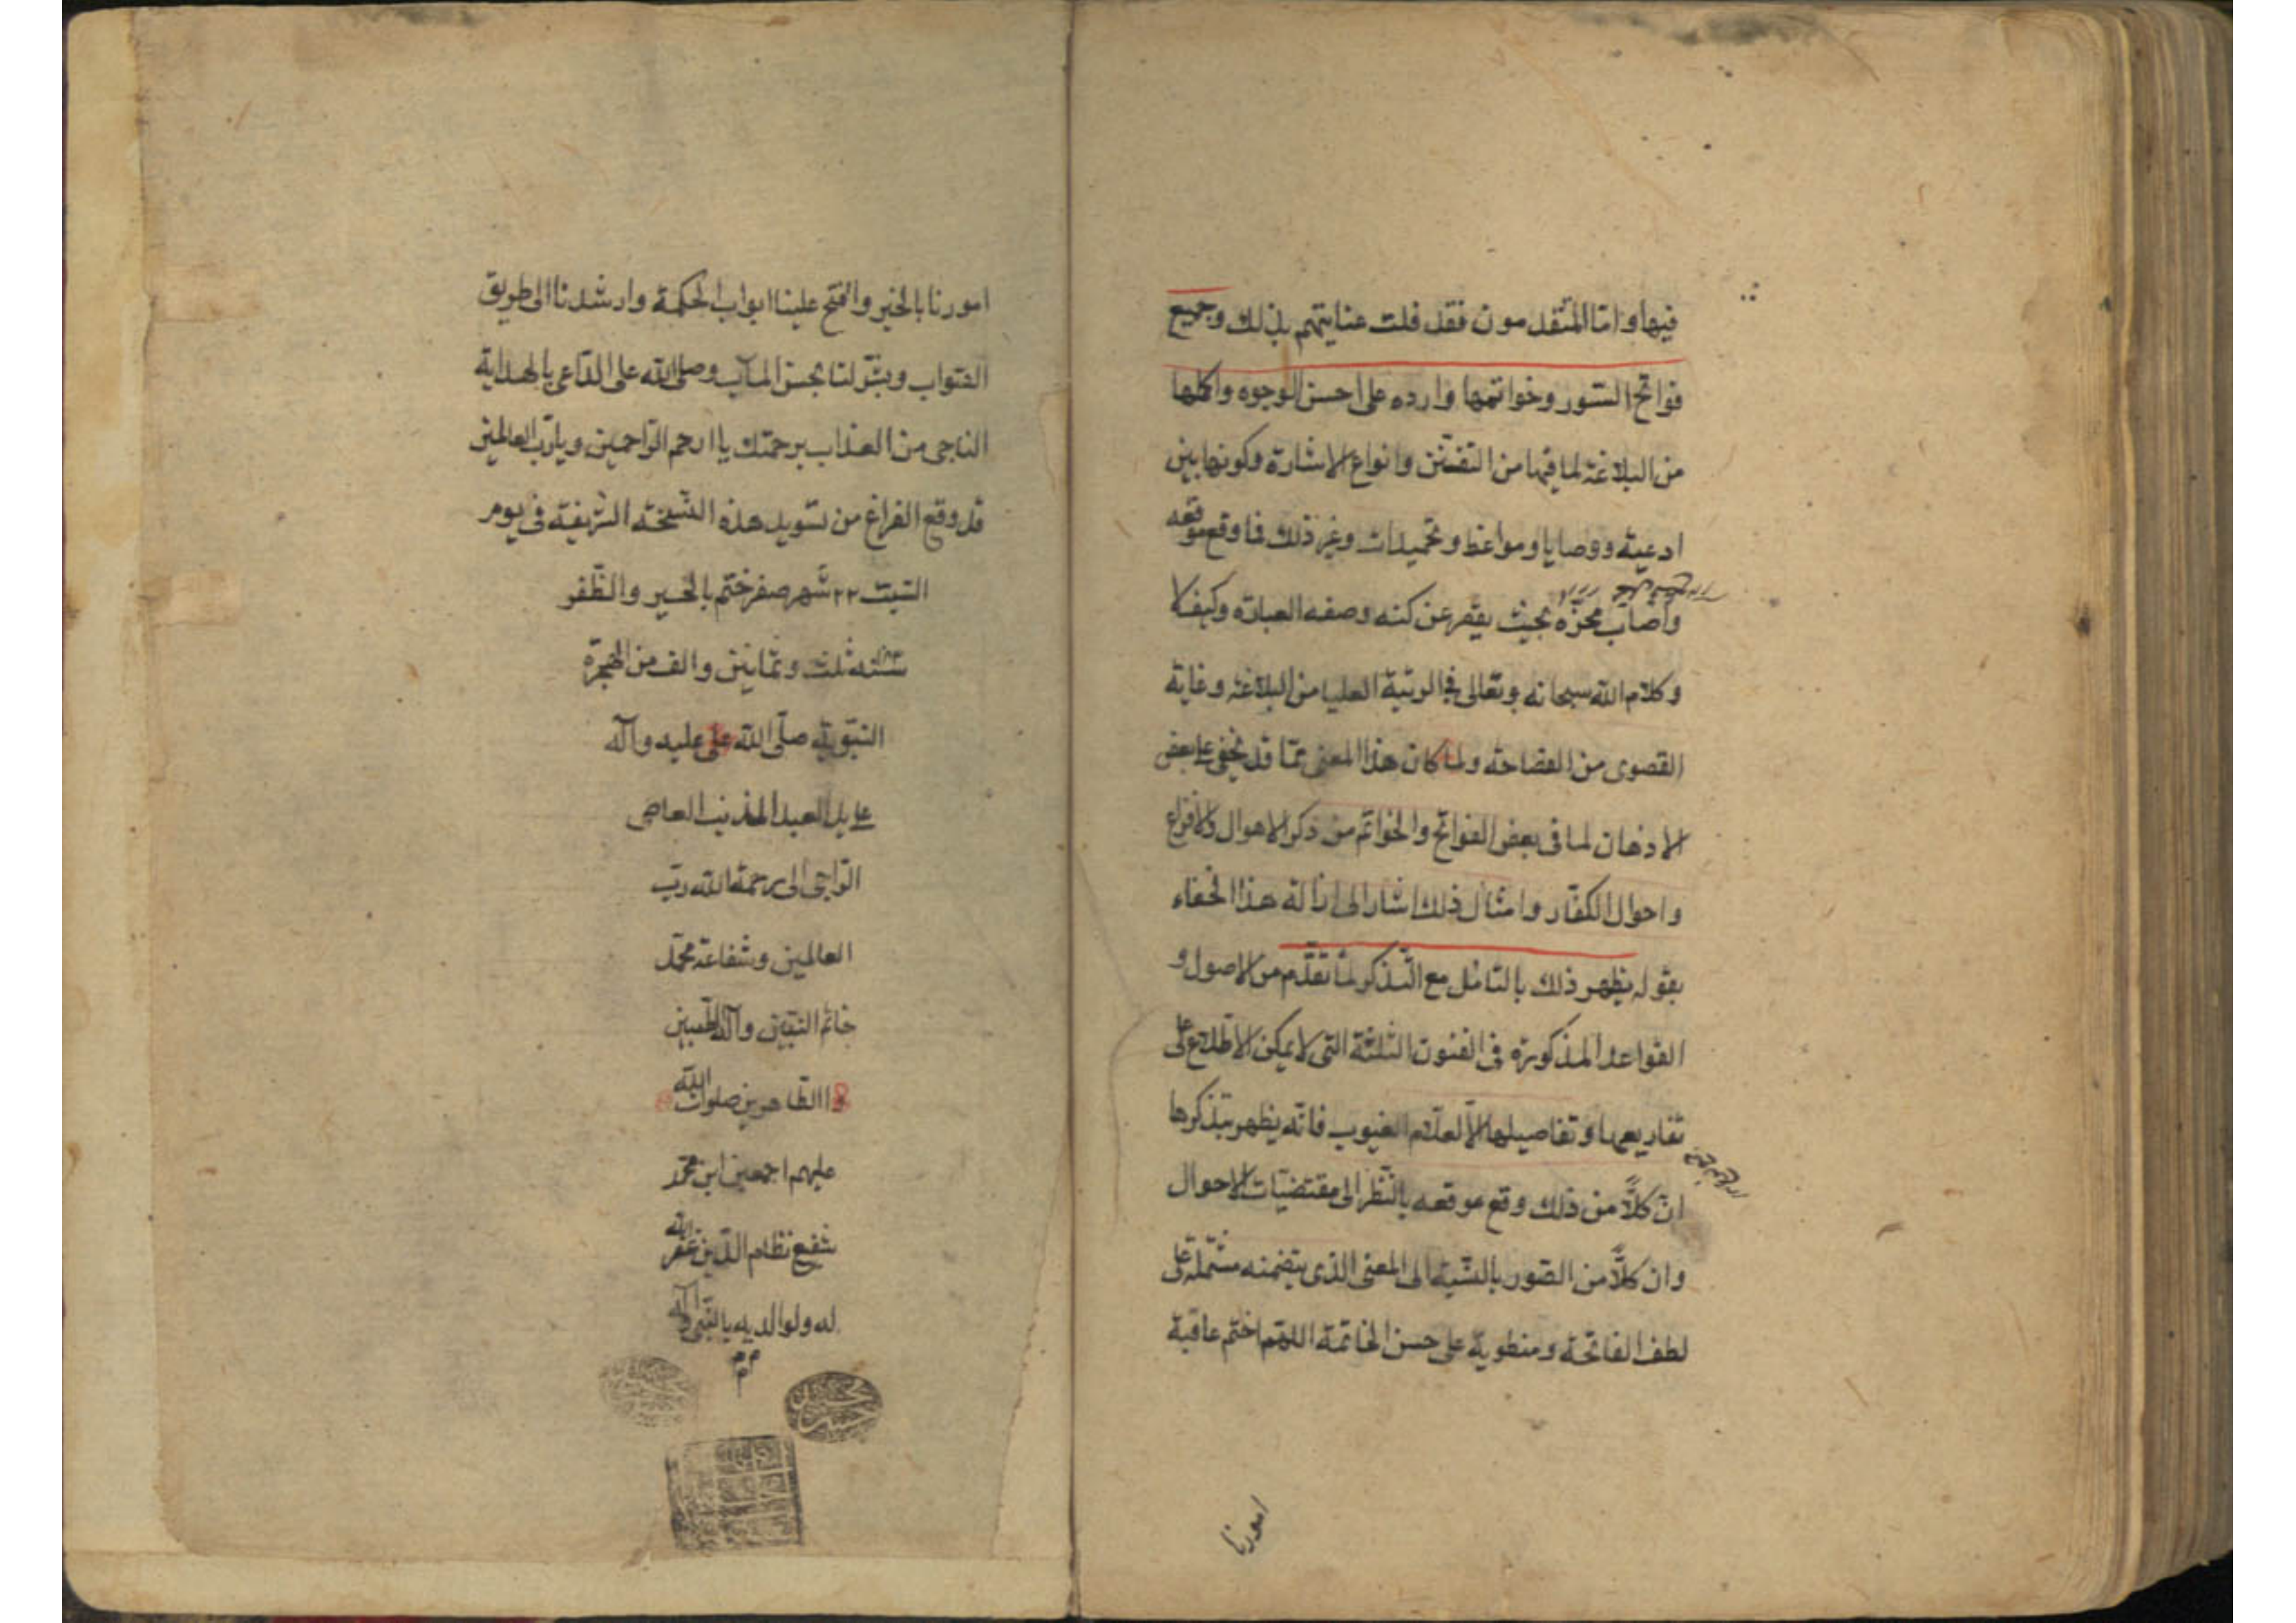 فيها واما المتقدمون فقد قلت عنايتهم بذلك وجميع
فواتح السور وخواتمها وارده على احسن الوجوه واكملها
من البلاغة لما فيها من التفنن وانواع الاشارة وكونها بين
ادعية ووصايا ومواعظ وتحميدات وغير ذلك فما وقع موقعه
واصاب محزه بحيث يقصر عن كنه وصفه العبارة وكيف لا
وكلام الله سبحانه وتعالى في الرتبة العليا من البلاغة وغاية
القصوى من الفصاحة ولما كان هذا المعنى مما قد يخفى على بعض
الاذهان لما في بعض الفواتح والخواتم من ذكر الاهوال والافزاع
واحوال الكفار وامثال ذلك اشار الى ازالة هذا الخفاء
بقوله يظهر ذلك بالتأمل مع التذكر لما تقدم من الاصول و
القواعد المذكورة في الفنون الثلثة التي لا يمكن الاطلاع على
تفاريعها وتفاصيلها الا لعلام الغيوب فانه يظهر بتذكرها
ان كلاً من ذلك وقع موقعه بالنظر الى مقتضيات الاحوال
وان كلاً من السور بالنسبة الى المعنى الذي يتضمنه مشتملة على
لطف الفاتحة ومنطوية على حسن الخاتمة اللهم اختم عاقبة
امورنا
امورنا بالخير وافتح علينا ابواب الحكمة وارشدنا الى طريق
الصواب وبشر لنا بحسن المآب وصلى الله على الداعي بالهداية
الناجي من العذاب برحمتك يا ارحم الراحمين ويا رب العالمين
قد وقع الفراغ من تسويد هذه النسخة الشريفة في يوم
السبت ٢٢ شهر صفر ختم بالخير والظفر
سنه ثلث وثمانين والف من الهجرة
النبوية صلى الله على عليه وآله
على يد العبد المذنب العاصي
الراجي الى رحمة الله رب
العالمين وشفاعة محمد
خاتم النبيين وآله الطيبين
الطاهرين صلوات الله
عليهم اجمعين ابن محمد
شفيع نظام الدين غفر الله
له ولوالديه بالنبي وآله